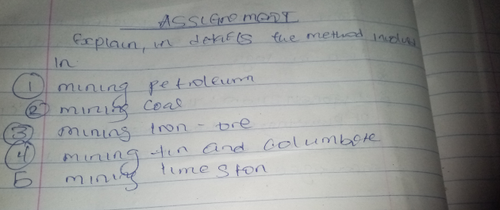 ASSIGNMENT
Explain, in details the method involved
in
1 mining petroleum
2 mining coal
3 mining Iron-ore
4 mining tin and columbite
5 mining limeston